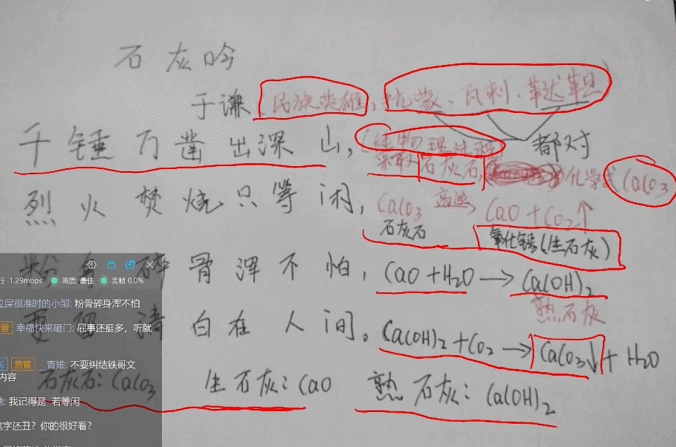 石灰吟
于谦(民族英雄,抗蒙、瓦剌、鞑靼
千锤万凿出深山,(经物理过程 都对
采取石灰石, 化学式CaCO3
烈火焚烧只等闲,CaCO3 高温 CaO+CO2↑
石灰石 氧化钙(生石灰)
粉 碎骨浑不怕,CaO+H2O→Ca(OH)2
熟石灰
要留清白在人间。Ca(OH)2+CO2→CaCO3↓+H2O
石灰石:CaCO3 生石灰:CaO 熟石灰:Ca(OH)2
1.29mbps 画质:最佳 丢帧 0.0%
屎很准时的小邹:粉骨碎身浑不怕
幸福快来砸门:屁事还挺多,听就
房管 青雉:不要纠结铁哥文
内容
我记得是 若等闲
字还丑?你的很好看?